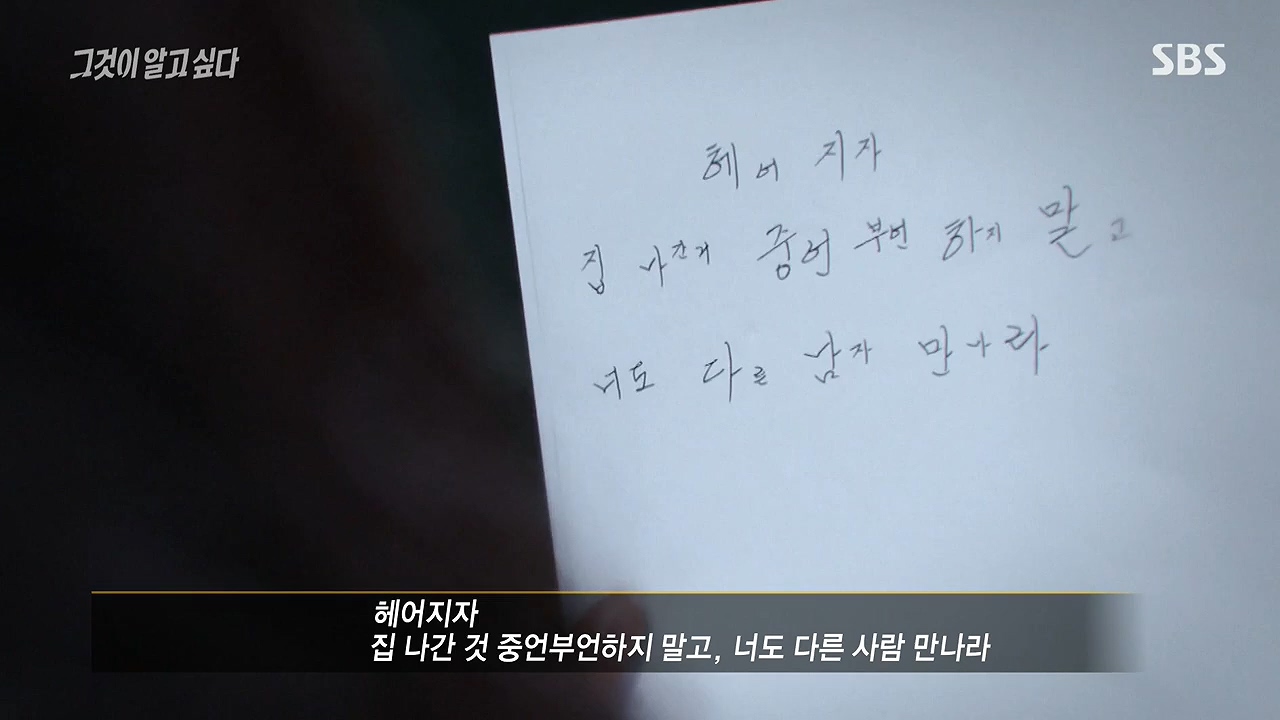 그것이 알고 싶다
SBS
헤어 지자
집 나간거 중언 부언 하지 말고
너도 다른 남자 만나라
헤어지자
집 나간 것 중언부언하지 말고, 너도 다른 사람 만나라